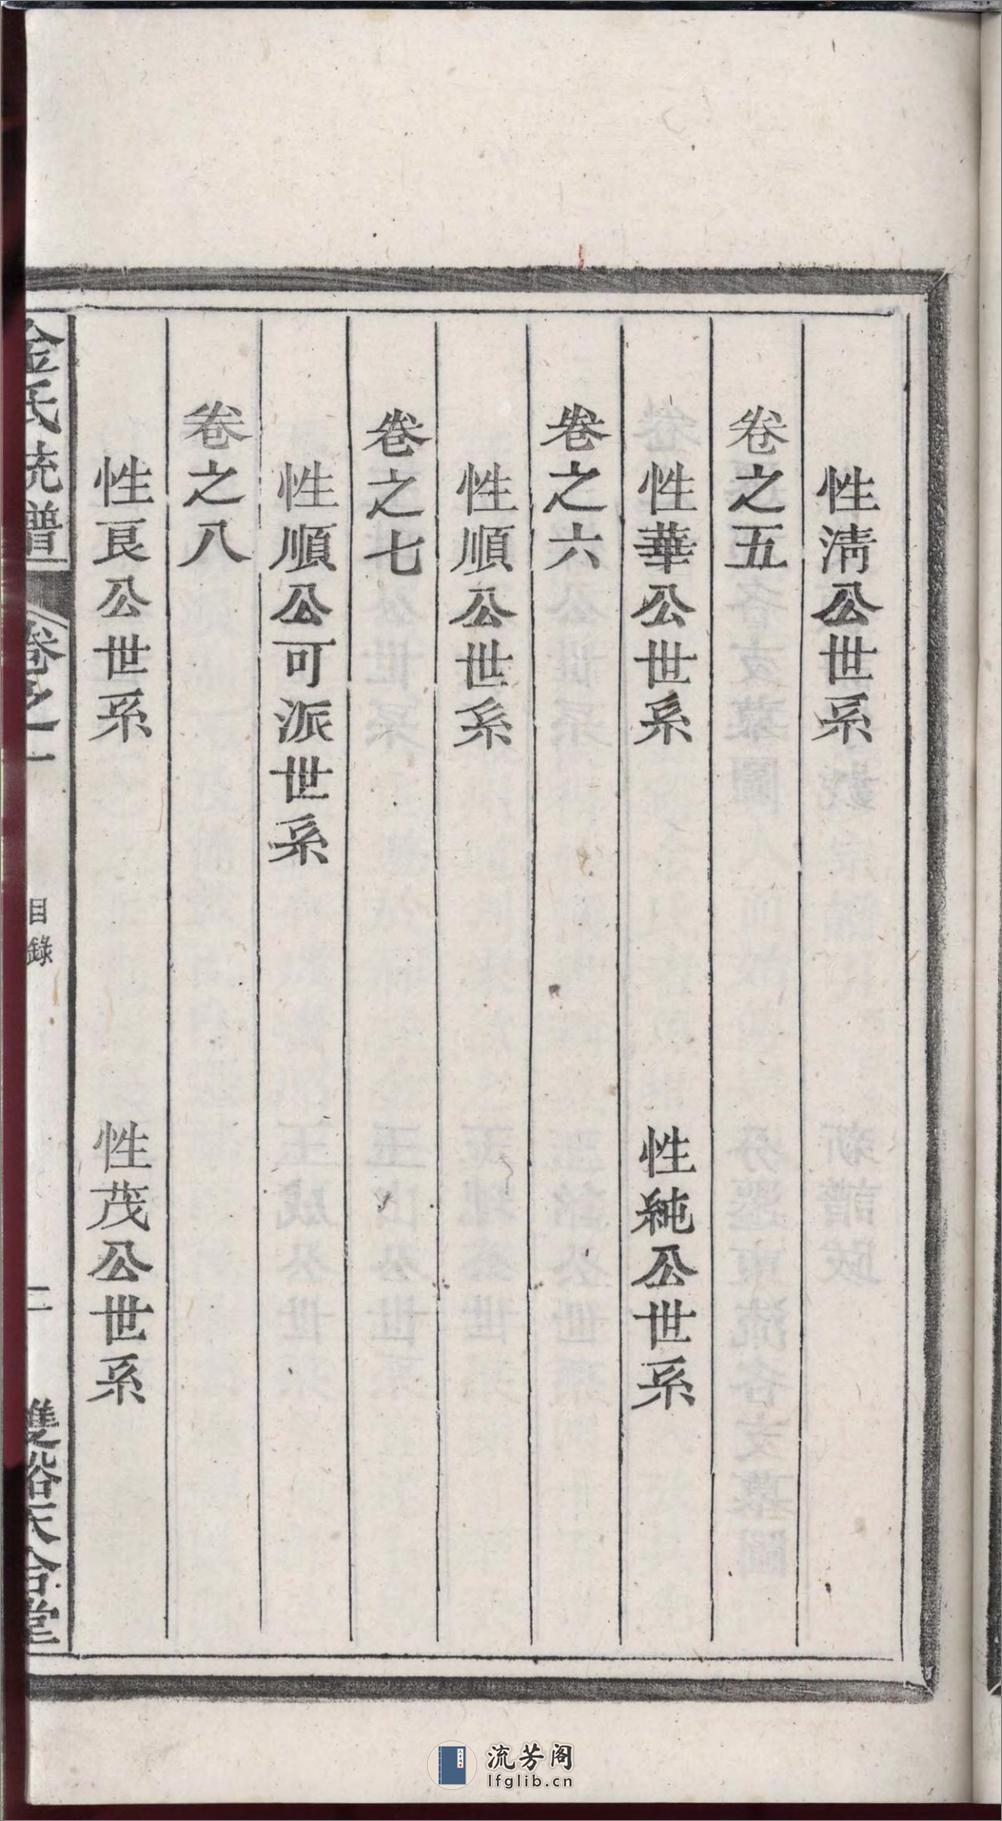 性淸公世系
卷之五
性華公世系　性純公世系
卷之六
性順公世系
卷之七
性順公可派世系
卷之八
性艮公世系　性茂公世系
金氏統譜　卷之一　目錄　二　雙峪天合堂
流芳阁
lfglib.cn